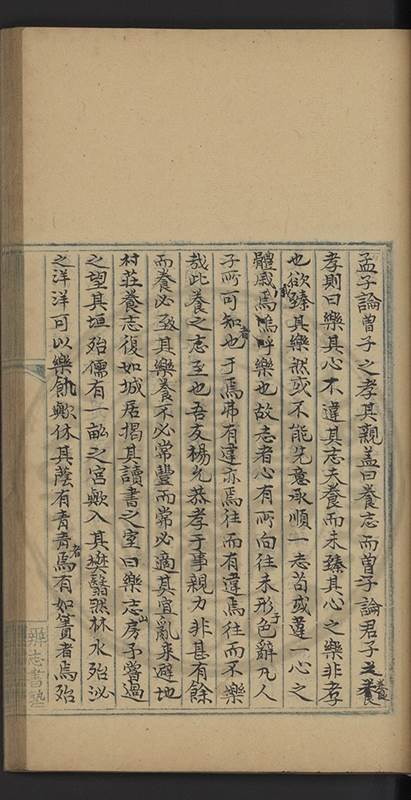 孟子論曾子之孝其親蓋曰養志而曾子論君子之養
孝則曰樂其心不違其志夫養而未臻其心之樂非孝
也欲臻其樂然或不能先意承順一志苟或違一心之
體戚焉嗚呼樂也故志者心有所向往未形于色辭凡人
子所可知者也于焉弗有違亦焉往而有違焉往而不樂
哉此養之志至也吾友楊先恭孝于事親力非甚有餘
而養必致其樂養不必常豐而常必適其宜亂來避地
村莊養志復如城居揭其讀書之室曰樂志山房予嘗過
之望其垣殆儒有一畝之宮歟入其樊翳然林水殆泌
之洋洋可以樂飢歟休其蔭有青青者焉有如簀者焉殆
樂志書塾